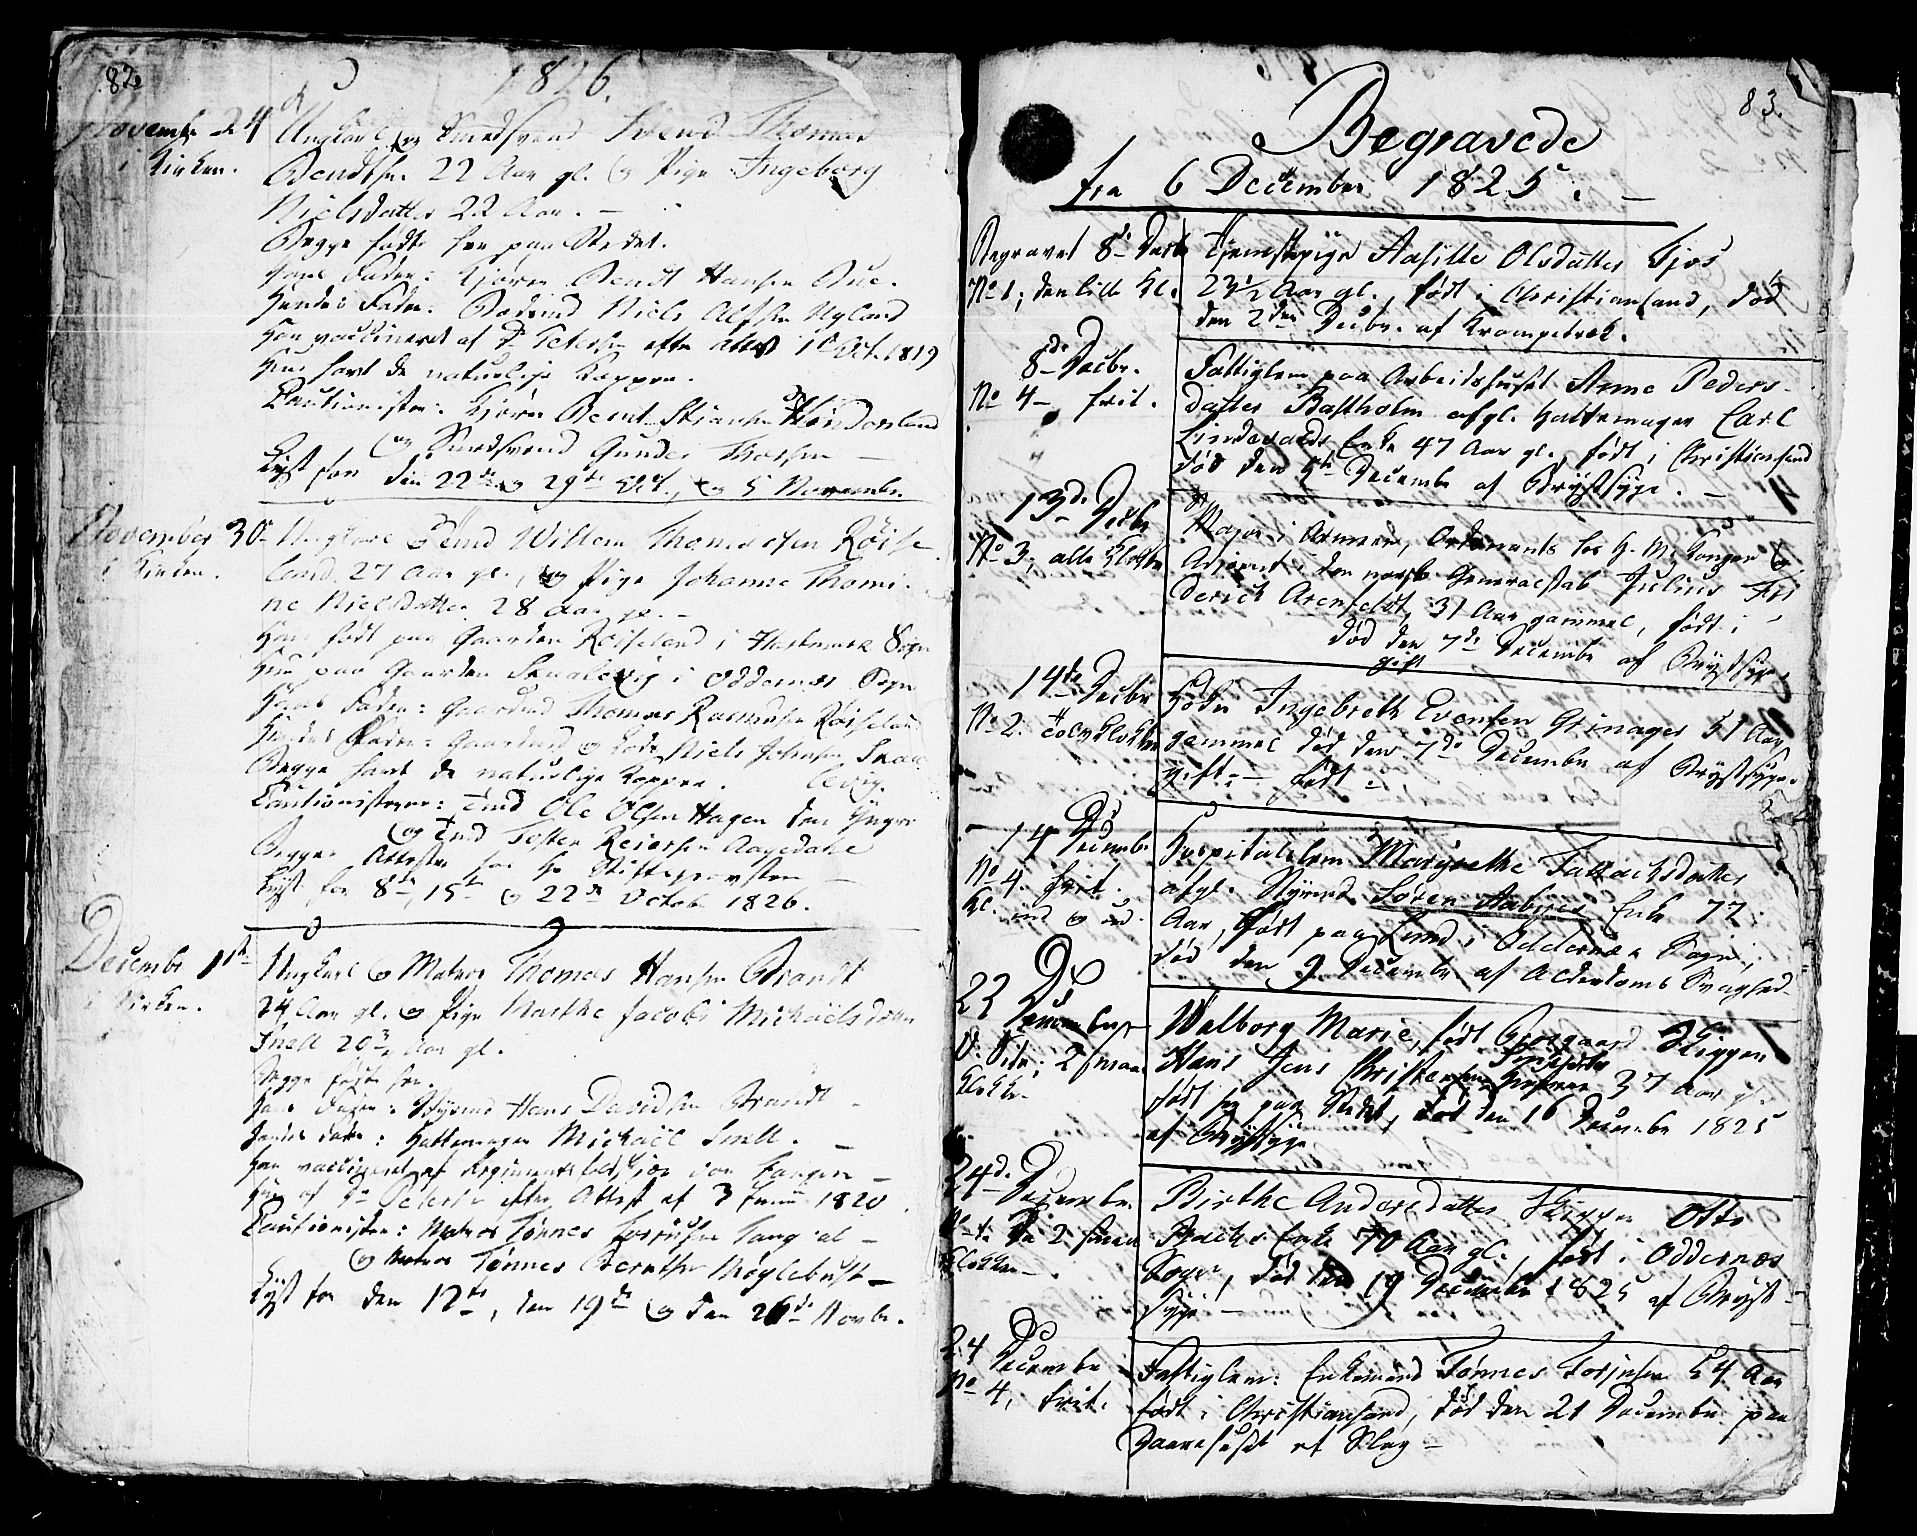 82.
1826.
November 24
i Kirken.
Ungkarl og Smedsvend Svend Thomas
Bendtsen 22 Aar gl. og Pige Ingeborg
Nielsdatter 22 Aar. —
Begge født her paa Stedet.
Hans Fader: Kjører Bendt Hansen Bue.
Hendes Fader: Niels Alfsen Nyland
Han vaccineret af Dr Petersen efter Attest 1819
Hun havt de naturlige Kopper.
Cautionister: Kjører Bernt
og Smedsvend Gunder Thorsen —
Lyst for den 22de og 29de Oct., og 5 Novembr.
November 30
i Kirken.
Ungkarl Willem Thomassen Röise
land 27 Aar gl., og Pige Johanne Thomi-
ne Nielsdatter 28 Aar gl. —
Han født paa Gaarden Röiseland i Sogn
Hun paa Gaarden i Oddernes Sogn
Hans Fader: Gaardmd Thomas Rasmussen Röiseland
Hendes Fader: Gaardmd og Niels Johnsen
Begge havt de naturlige Kopper.
Cautionisterne: Ole Olsen Hagen den yngre
og Reiersen Aagedahl
Begges Attester fra Hr Stiftsprovsten
Lyst for 8de, 15de og 22de Octob. 1826.
December 1ste
i Kirken.
Ungkarl og Matros Thomas Hansen Brandt
24 Aar gl. og Pige Marthe Jacobe Michaëlsdatter
Snell 20 Aar gl.
Begge født her.
Hans Fader: Styrmd Hans Davidsen Brandt —
Hendes Fader: Hattemager Michaël Snell. —
Han vaccineret af
Hun af Dr Petersen efter Attest af 3 Junii 1820
Cautionister: Matros Tønnes
og Matros Tønnes Berntsen Møglebust —
Lyst for den 12te, den 19de og den 26de Novbr.
83.
Begravede
fra 6 December 1825. —
Begravet 8de Decbr
No 1, den lille Kl.
Tjenestepige Aasille Olsdatter Fjos
23½ Aar gl., født i Christiansand, død
den 2den Decbr. af Krampetræk.
8de Decbr.
No 4 — frit.
Fattiglem paa Arbeidshuset Anne Peders-
datter Bastholm afgl. Hattemager Carl
Lindegaards Enke 47 Aar gl., født i Christiansand
død den 5te Decembr af Brystsyge. —
13de Decbr
No 3, alle Klokker
Major i Armeen, Ordonants hos H. M. Kongen og
Adjoint i den norske Generalstab Julius Fri
derich Arenfeldt, 31 Aar gammel, født i
død den 7de Decembr af Brystsyge.
14de Decbr
No 2. Klokken
gift
Ingebreth Evensen Grinager 51 Aar
gammel død den 7de Decembr af Brystsyge.
gift. — født :
14 Decembr
No 4. frit.
Kl. ind og ud.
Hospitalslem Margrethe Tallachsdatter
afgl. Styrmd Søren Aabyes Enke 77
Aar, født paa Lund i Oddernes Sogn,
død den 9 Decembr af Alderdoms Svaghed
22 December
V. Side; 2 smaa
Klokker.
Walborg Marie, født Skipper
Hans Jens Christensen 37 Aar gl.
født her paa Stedet, død den 16 Decembr 1825
af Brystsyge
24de Decembr.
No 1. De 2 smaa
Klokker —.
Birthe Andersdatter Skipper Otto
Enke 70 Aar gl., født i Oddernes
Sogn, død den 19 Decembr 1825 af Bryst-
syge —
24 Decembr
No 4, frit.
Fattiglem: Enkemand Tønnes 54 Aar
født i Christiansand, død den 21 Decembr paa
Daarehuset af Slag —